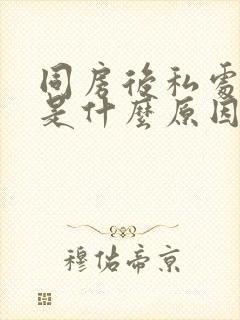 同房後私處
是什麼原因
穆佑帝京